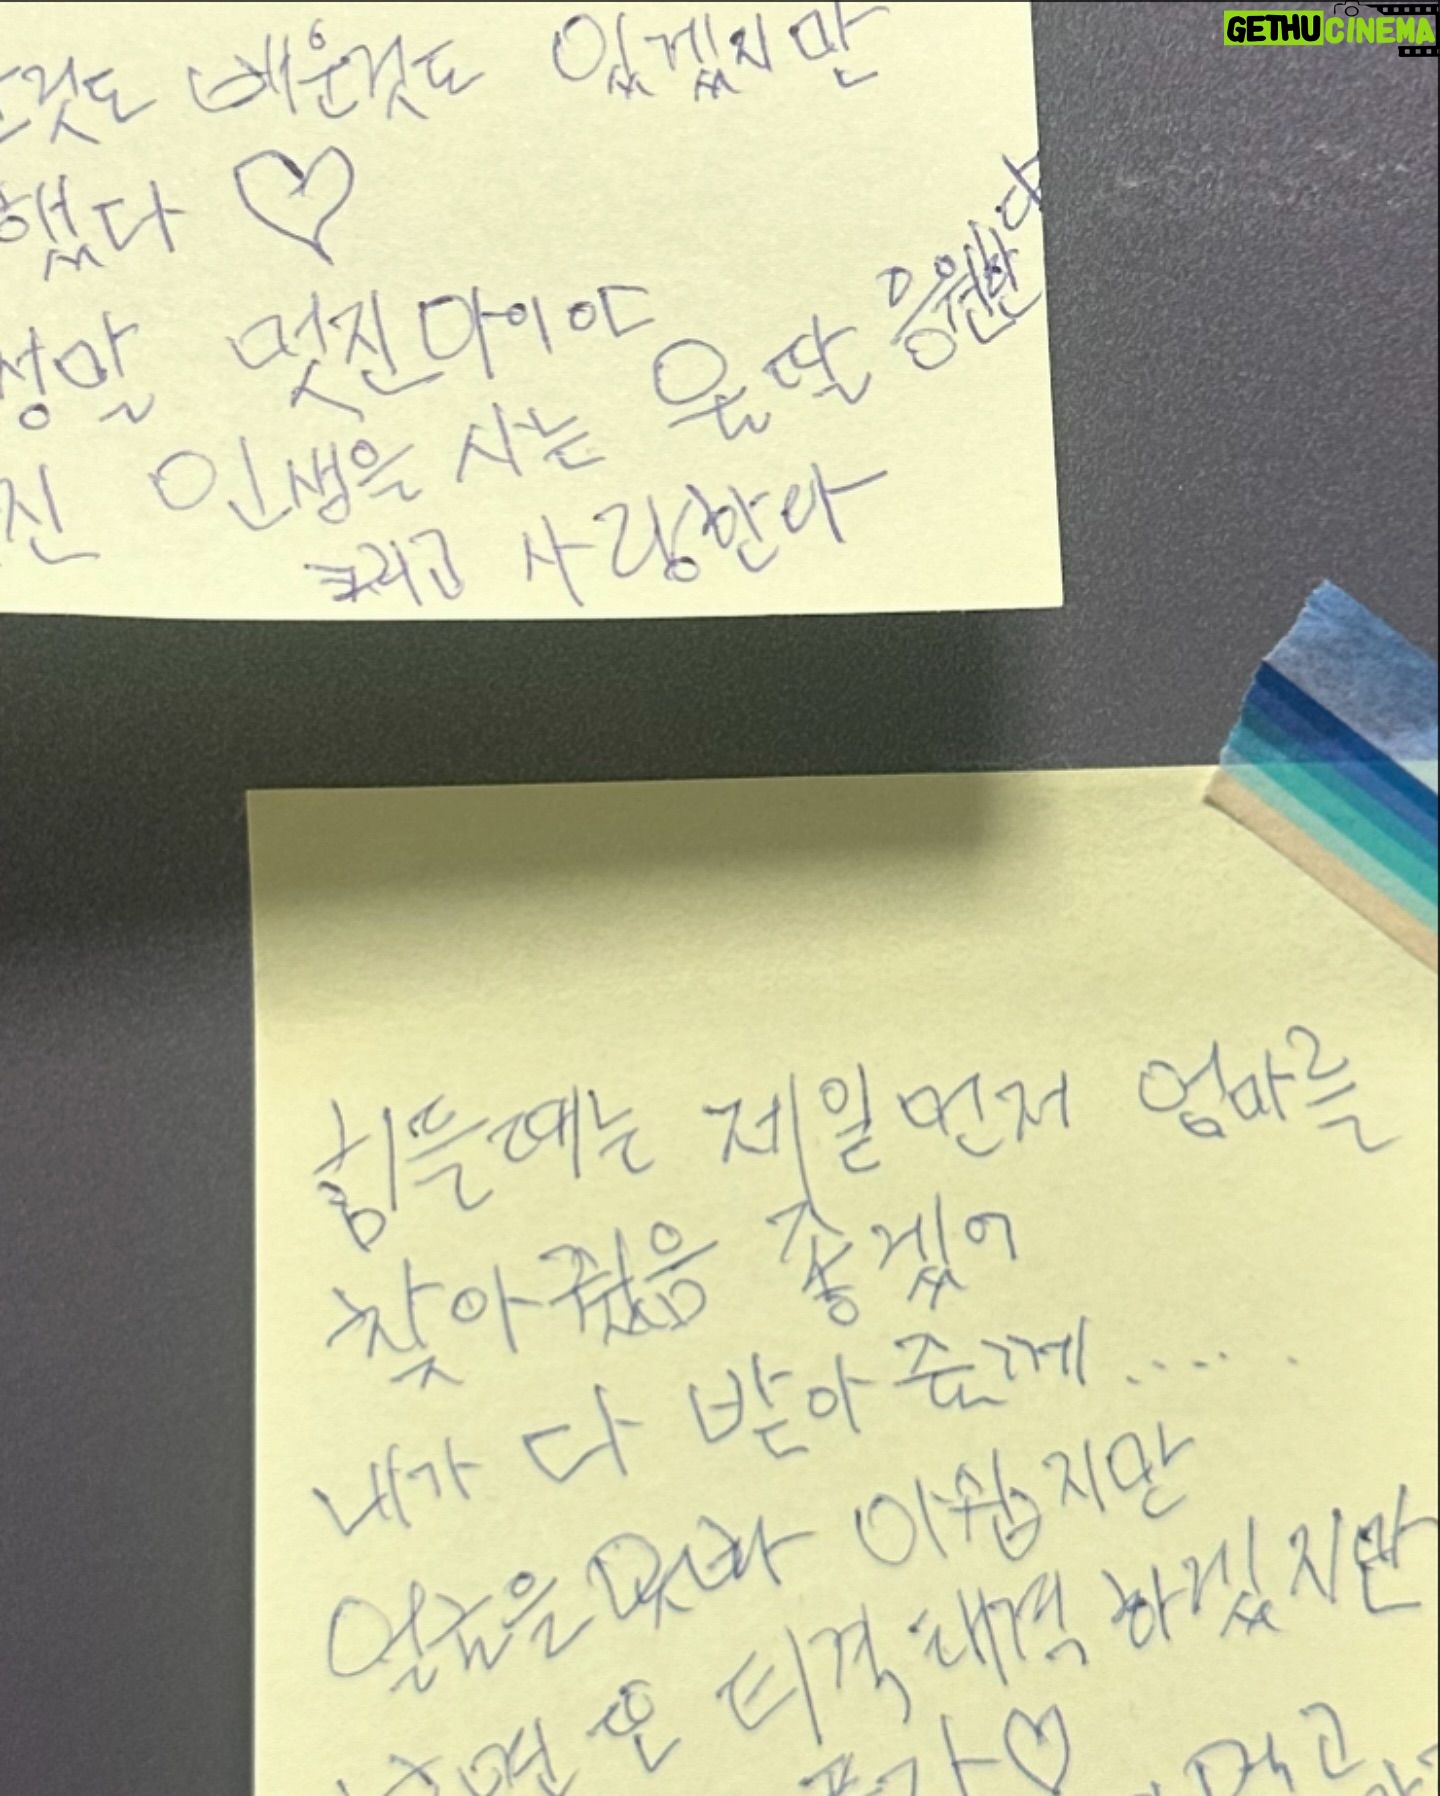 GETHUCINEMA
것도 배운것도 있겠지만
했다 ♡
정말 멋진아이야
진 인생을 사는 울딸 응원한다
그리고 사랑한다
힘들때는 제일먼저 엄마를
찾아줬음 좋겠어
내가 다 받아줄께.....
얼굴을 못봐 아쉽지만
보면 또 티격태격 하겠지만
먹고